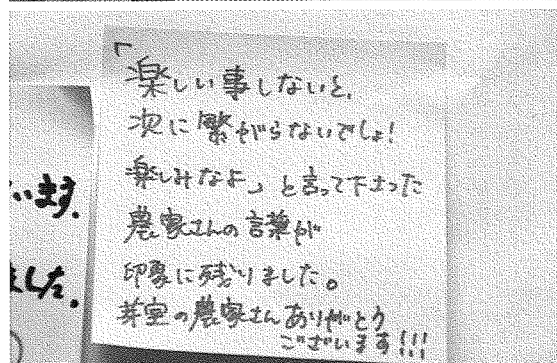 「楽しい事しないと、
次に繋がらないでしょ!
楽しみなよ」と言って下さった
農家さんの言葉が
印象に残りました。
芽室の農家さんありがとう
ございます!!!
います。
ました。